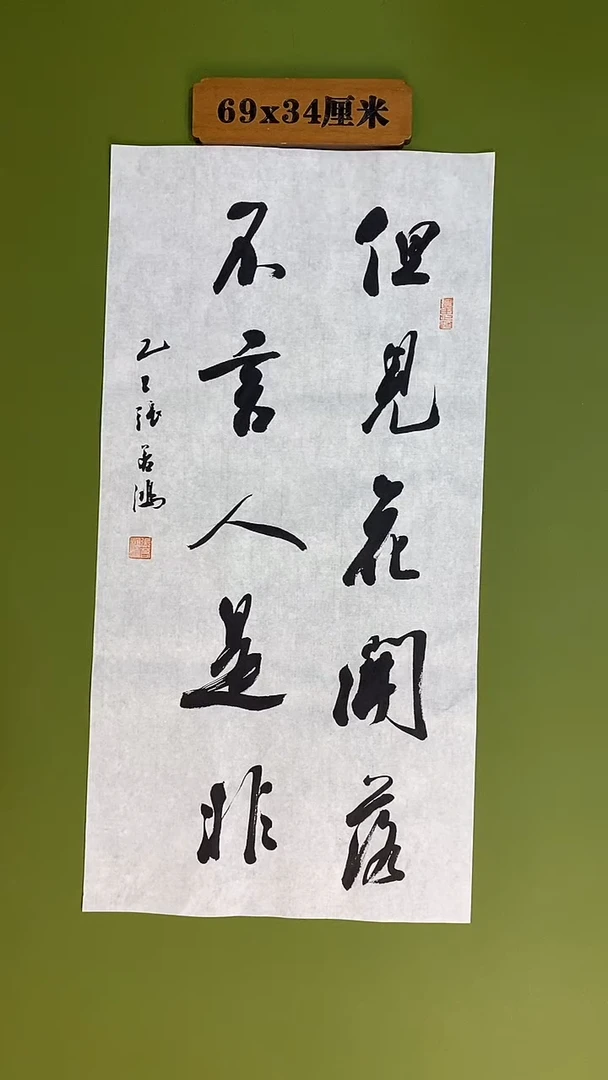 69x34厘米
但見花開落
不言人是非
乙巳張若鴻